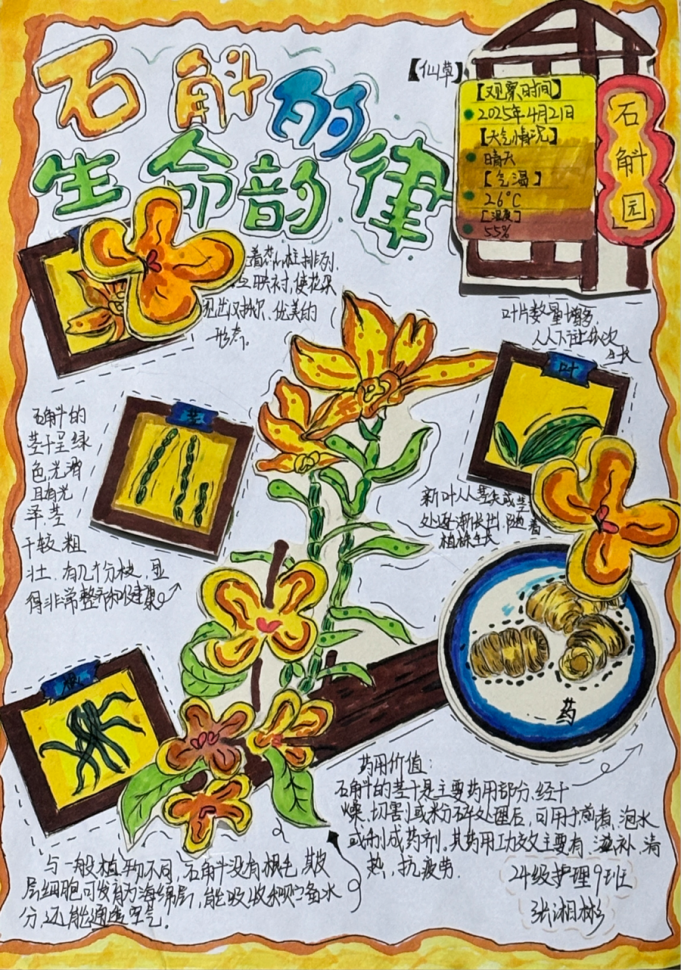 石斛的
生命韵律
【仙草】
【观察时间】
2025年4月21日
【天气情况】
晴天
【气温】
26°C
【湿度】
55%
石斛园
着花心柱排列,
互映衬,使花朵
优美的
形态。
叶片数量增多
从下往上依次
生长
叶
茎
石斛的
茎干呈绿
色光滑
且有光
泽茎
干较粗
壮.有几个分枝,显
得非常整齐和健康
新叶从茎尖或茎
处逐渐长出,随着
植株生长
根
药
药用价值:
石斛的茎干是主要药用部分.经干
燥、切割或粉碎处理后,可用于煎煮、泡水
或制成药剂.其药用功效主要有:滋补、清
热,抗疲劳.
与一般植物不同,石斛没有根毛,其皮
层细胞可发育为海绵层,能吸收和贮备水
分,还能通透空气。
24级护理9班
张湘彬